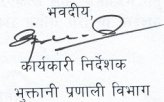 भवदीय,
कार्यकारी निर्देशक
भुक्तानी प्रणाली विभाग